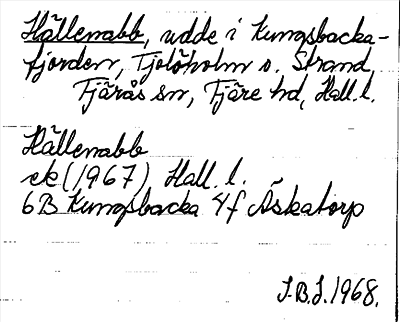 Hällenabb, udde i Kungsbacka-
fjorden, Tjolöholm o. Strand,
Fjärås sn, Fjäre hd, Hall. l.
Hällenabb
ek (1967) Hall. l.
6B Kungsbacka 4f Äskatorp
J.B.J. 1968.